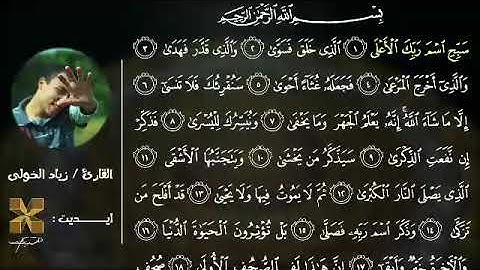 بِسْمِ ٱللَّهِ ٱلرَّحْمَٰنِ ٱلرَّحِيمِ
سَبِّحِ ٱسْمَ رَبِّكَ ٱلْأَعْلَى ١ ٱلَّذِى خَلَقَ فَسَوَّىٰ ٢ وَٱلَّذِى قَدَّرَ فَهَدَىٰ ٣
وَٱلَّذِىٓ أَخْرَجَ ٱلْمَرْعَىٰ ٤ فَجَعَلَهُۥ غُثَآءً أَحْوَىٰ ٥ سَنُقْرِئُكَ فَلَا تَنسَىٰٓ ٦
إِلَّا مَا شَآءَ ٱللَّهُ ۚ إِنَّهُۥ يَعْلَمُ ٱلْجَهْرَ وَمَا يَخْفَىٰ ٧ وَنُيَسِّرُكَ لِلْيُسْرَىٰ ٨ فَذَكِّرْ
إِن نَّفَعَتِ ٱلذِّكْرَىٰ ٩ سَيَذَّكَّرُ مَن يَخْشَىٰ ١٠ وَيَتَجَنَّبُهَا ٱلْأَشْقَى ١١
ٱلَّذِى يَصْلَى ٱلنَّارَ ٱلْكُبْرَىٰ ١٢ ثُمَّ لَا يَمُوتُ فِيهَا وَلَا يَحْيَىٰ ١٣ قَدْ أَفْلَحَ مَن
تَزَكَّىٰ ١٤ وَذَكَرَ ٱسْمَ رَبِّهِۦ فَصَلَّىٰ ١٥ بَلْ تُؤْثِرُونَ ٱلْحَيَوٰةَ ٱلدُّنْيَا ١٦
وَٱلْءَاخِرَةُ خَيْرٌ وَأَبْقَىٰٓ ١٧ إِنَّ هَٰذَا لَفِى ٱلصُّحُفِ ٱلْأُولَىٰ ١٨ صُحُفِ
القارئ / زياد الخولى
ايديت :